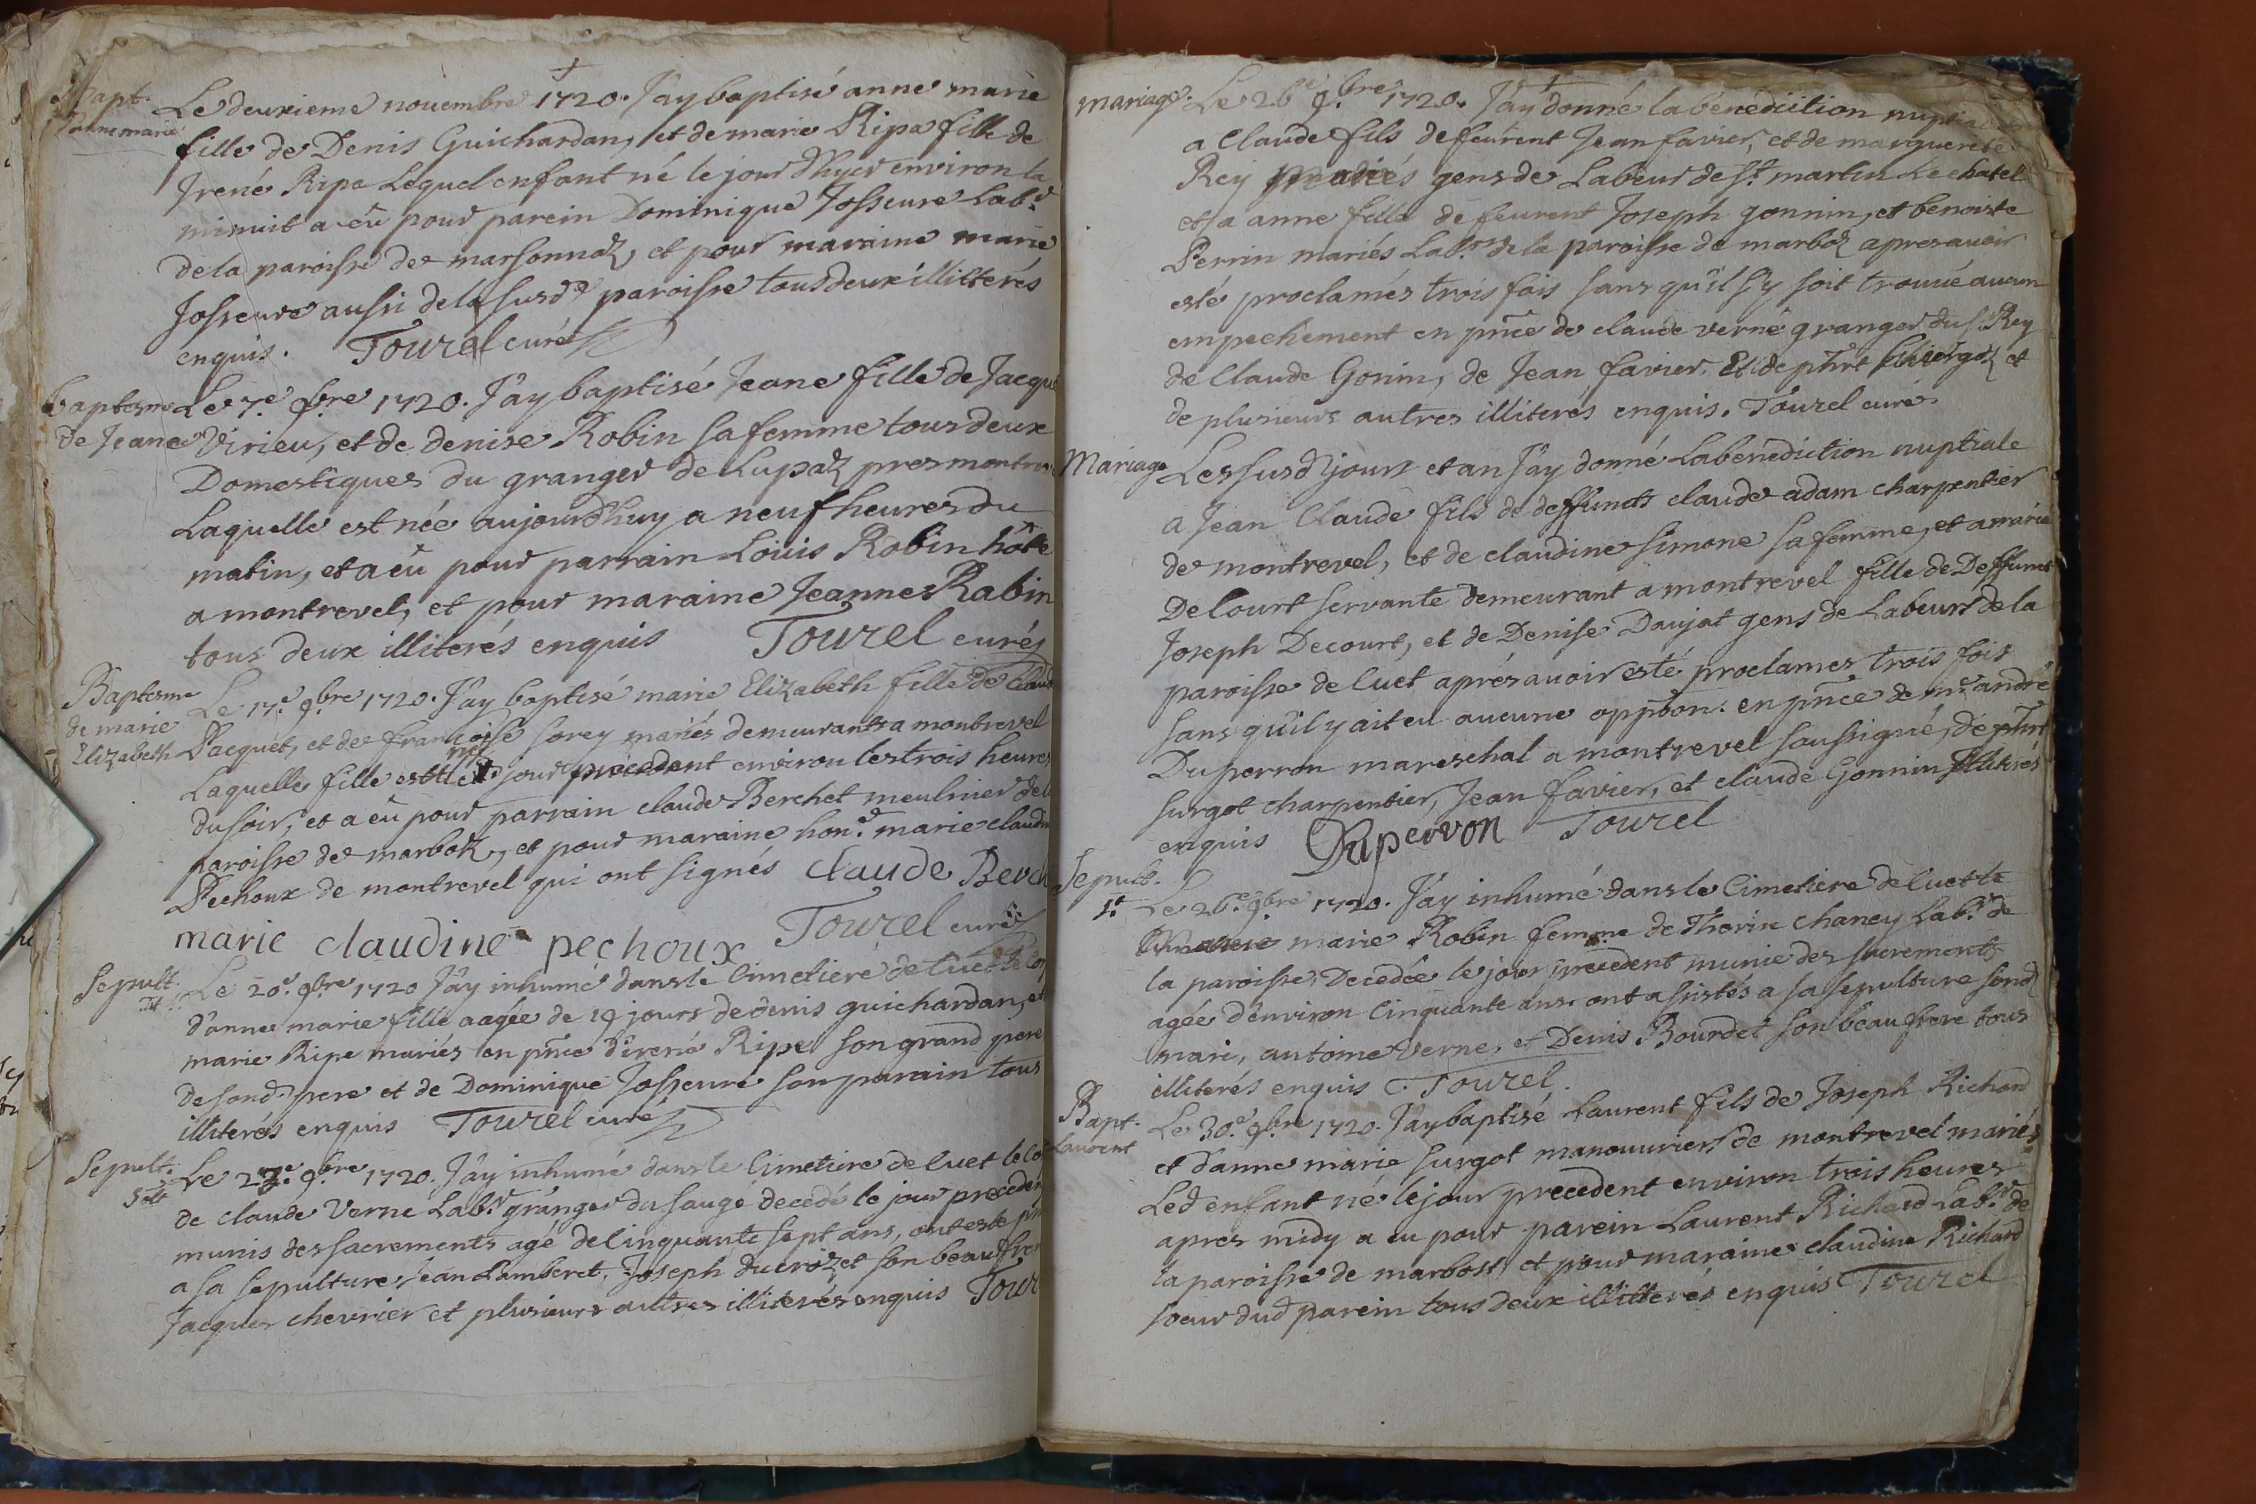 Bapt.
d'anne marie
Le deuxieme novembre 1720. J'ay baptisé anne marie
fille de Denis Guichardan, et de marie Ripe fille de
Irené Ripe Lequel enfant né le jour d'hyer environ la
minuit a eü pour parein Dominique Josserve Lab.r
de la paroisse de marsonnaz, et pour maraine marie
Josserve aussi de la susd.e paroisse tous deux illitterés
enquis. Tourel curé
baptesme
de Jeane
Le 7.e 9bre 1720. J'ay baptisé Jeane fille de Jacque
Virieu, et de denise Robin sa femme tous deux
Domestiques du granger de Lupaz pres montrev
Laquelle est née aujourd'huy a neuf heures du
matin, et a eü pour parrain Loüis Robin hôte
a montrevel, et pour maraine Jeanne Rabin
tous deux illiterés enquis Tourel curé
Baptesme
de marie
Elizabeth
Le 17.e 9bre 1720. J'ay baptisé marie Elizabeth fille de Claude
Pacquet, et de francoise sorey mariés demeurants a montrevel
Laquelle fille est jour precedent environ les trois heures
du soir, et a eü pour parrain claude Berchet meulnier de l
paroisse de marboz, et pour maraine hon.e marie claudin
Pechoux de montrevel qui ont signés Claude Berch
marie claudine pechoux Tourel curé
Sepult.
Le 20.e 9bre 1720 J'ay inhumé dans le Cimetiere de Cuet le Cor
d'anne marie fille aagée de 19 jours de denis guichardan, et
marie Ripe mariés en pnce d'irené Ripe son grand pere
de sond. pere et de Dominique Josserve son parain tous
illiterés enquis Tourel curé
Sepult.
Le 23.e 9bre 1720. J'ay inhumé dans le Cimetiere de Cuet le Co
de claude Verne Lab.r granger du saugé decedé le jour preceden
munis des sacrements agé de Cinquante sept ans, ont esté pn
a sa sepulture Jean Lamberet, Joseph ducroz et son beaufrer
Jacques chevrier et plusieurs autres illiterés enquis Tour
mariage
Le 26e 9.bre 1720. J'ay donné la bénédiction nuptiale
a Claude fils de feurent Jean favier, et de marguerite
Rey mariés gens de Labeur de St. martin Le chatel
et a anne fille de feurent Joseph gonnin, et benoite
Perrin mariés Lab.rs de la paroisse de marboz apres avoir
esté proclamés trois fois sans qu'il s'y soit trouvé aucun
empechement en pnce de claude verne granger du s.r Rey
de Claude Gonin, de Jean favier, Et de phrt surgoz et
de plusieurs autres illiterés enquis. Tourel curé.
Mariage
Les susd. jours et an J'ay donné La bénédiction nuptiale
a Jean Claude fils de deffuncts claude adam charpentier
de montrevel, et de claudine simone sa femme, et a marie
Delourt servante demeurant a montrevel fille de Deffunct
Joseph Decourt, et de Denise Daujat gens de Labeurs de la
paroisse de Cuet aprés avoir esté proclames trois fois
sans qu'il y ait eu aucune oppôon. en pnce de m.e andré
Duperron mareschal a montrevel soussigné, de phrt
surgot charpentier, Jean favier, et claude Gonnin illiterés
enquis Duperron Tourel
Sepult.
1.e
Le 26.e 9bre 1720. J'ay inhumé dans le Cimetiere de Cuet le
marie Robin femme de Thorin chaney Lab.r de
la paroisse, Decedée le jour precedent munie des sacrements
agée d'environ Cinquante ans ont assistés a sa sepulture sond
mari, antoine verne, et Denis Bourdet son beaufrere tous
illiterés enquis Tourel.
Bapt.
Laurent
Le 30.e 9bre 1720. J'ay baptisé Laurent fils de Joseph Richard
et d'anne marie surgot manouvriers de montrevel mariés
Led enfant né le jour precedent environ trois heures
apres midy a eu pour parein Laurent Richard Lab.r de
la paroisse de marbost et pour maraine claudine Richard
soeur dud parein tous deux illitterés enquis Tourel